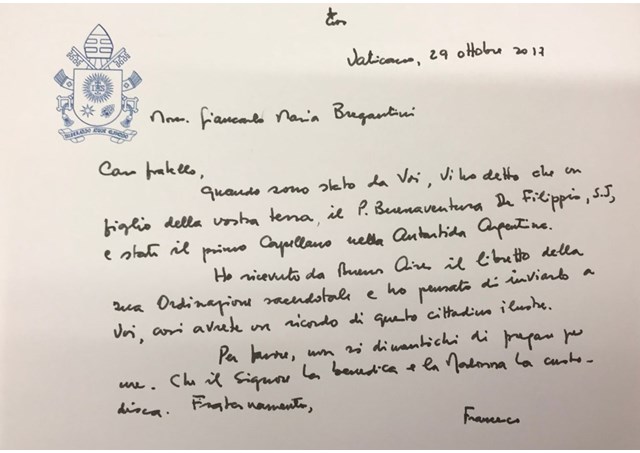 Vaticano, 29 ottobre 2017
Mons. Giancarlo Maria Bregantini
Caro fratello,
quando sono stato da Voi, Vi ho detto che un
figlio della vostra terra, il P. Buenaventura De Filippis, S.J,
è stato il primo Capellano nella Antartida Argentina.
Ho ricevuto da Buenos Aires il libretto della
sua Ordinazione sacerdotale e ho pensato di inviarlo a
Voi, così avrete un ricordo di questo cittadino ilustre.
Per favore, non si dimentichi di pregare per
me. Che il Signore La benedica e la Madonna La custo-
disca. Fraternamente,
Francesco